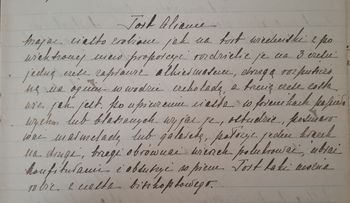 Tort Aliance
mając ciasto zrobione jak na tort wiedeński z po
większonej nieco proporcyi rozdzielić je na 3 części
jedną część zaprawić alkiermesem, drugą rozpuszczo
ną na ogniu w wodzie czekoladą, a trzecią część zosta
wić jak jest, po upieczeniu ciasta w foremkach papiero
wych lub blaszanych wyjąć je, ostudzić, posmaro
wać marmeladą lub galaretą, położyć jeden krążek
na drugi, brzegi obrównać wierzch polukrować, ubrać
konfiturami i obłożyć w pienie. Tort taki można
robić z ciasta biszkoptowego.